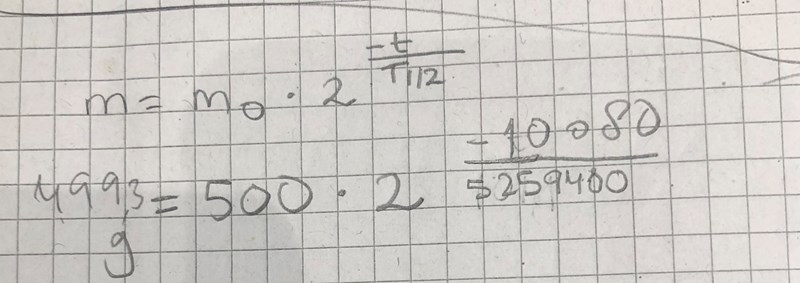 m = m₀ · 2^(-t/T1/2)
499,3 = 500 · 2^(-10080/5259400)
g